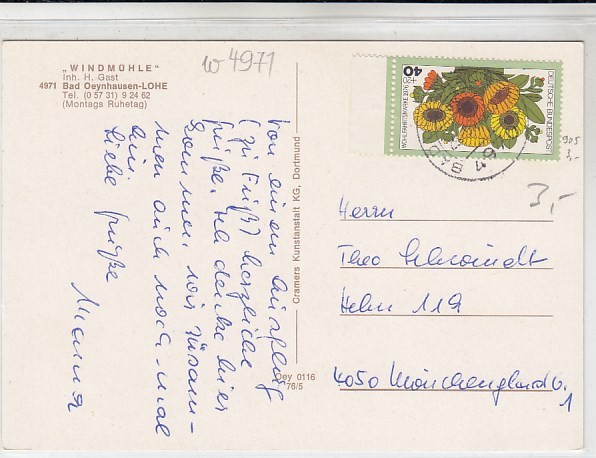 „WINDMÜHLE"
Inh. H. Gast
4971 Bad Oeynhausen-LOHE
Tel. (0 57 31) 9 24 62
(Montags Ruhetag)
w 4971
Von einem Ausflug
(zu Fuß) herzliche
Grüße. Ich denke hier
kommen wir zusam-
men auch noch mal
hin.
Liebe Grüße
Cramers Kunstanstalt KG, Dortmund
Oey 0116
76/5
40
+20
WOHLFAHRTSMARKE 1976
DEUTSCHE BUNDESPOST
BAD
905
3,-
3,-
Herrn
Theo Schmidt
Hehn 119
4050 Mönchengladb.
1